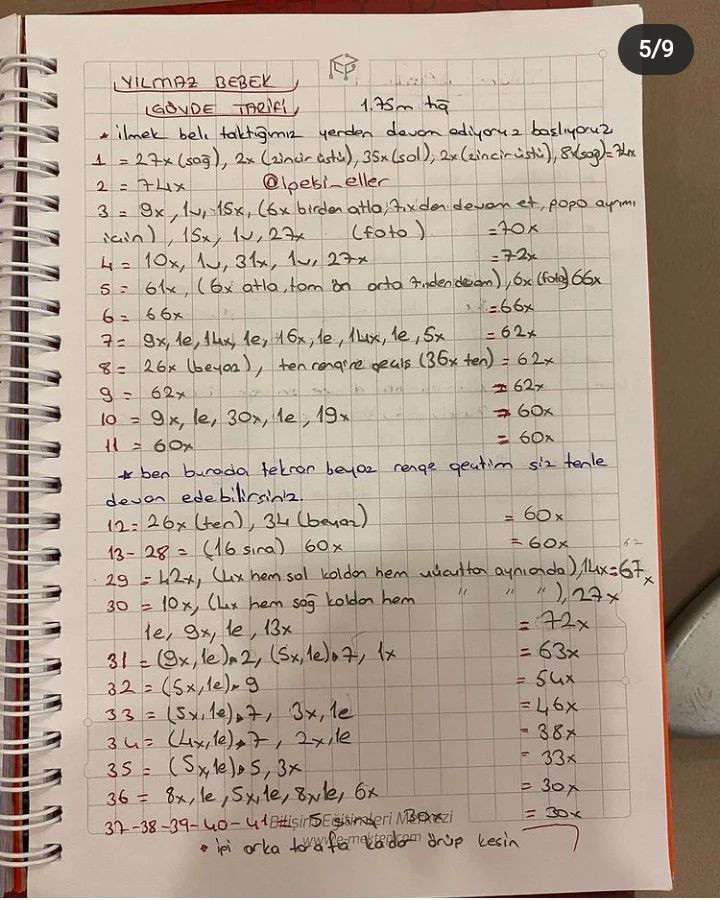 5/9
YILMAZ BEBEK
GÖVDE TARİFİ 1.75m tığ
• ilmek beli taktığımız yerden devam ediyoruz başlıyoruz
1 = 27x (sağ), 2x (zincir üstü), 35x (sol), 2x (zincir üstü), 8x (sağ) = 74x
2 = 74x @ipeksi_eller
3 = 9x, 1v, 15x, (6x birden atla, 7.x den devam et, popo ayrımı
için), 15x, 1v, 27x (foto) = 70x
4 = 10x, 1v, 31x, 1v, 27x = 72x
5 = 61x, (6x atla, tam ön orta 7.den devam), 6x (foto) 66x
6 = 66x = 66x
7 = 9x, 1e, 14x, 1e, 16x, 1e, 14x, 1e, 5x = 62x
8 = 26x (beyaz), ten rengine geçiş (36x ten) = 62x
9 = 62x = 62x
10 = 9x, 1e, 30x, 1e, 19x = 60x
11 = 60x = 60x
* ben burada tekrar beyaz renge geçtim siz tenle
devam edebilirsiniz.
12 = 26x (ten), 34 (beyaz) = 60x
13-28 = (16 sıra) 60x = 60x
29 = 42x, (4x hem sol koldan hem vücuttan aynıanda), 14x = 67x
30 = 10x, (4x hem sağ koldan hem " " "), 27x
1e, 9x, 1e, 13x = 72x
31 = (9x, 1e)*2, (5x, 1e)*7, 1x = 63x
32 = (5x, 1e)*9 = 54x
33 = (5x, 1e)*7, 3x, 1e = 46x
34 = (4x, 1e)*7, 2x, 1e = 38x
35 = (5x, 1e)*5, 3x = 33x
36 = 8x, 1e, 5x, 1e, 8x, 1e, 6x = 30x
37-38-39-40-41 = 5 sıra 30x = 30x
• ipi arka tarafa kadar örüp kesin